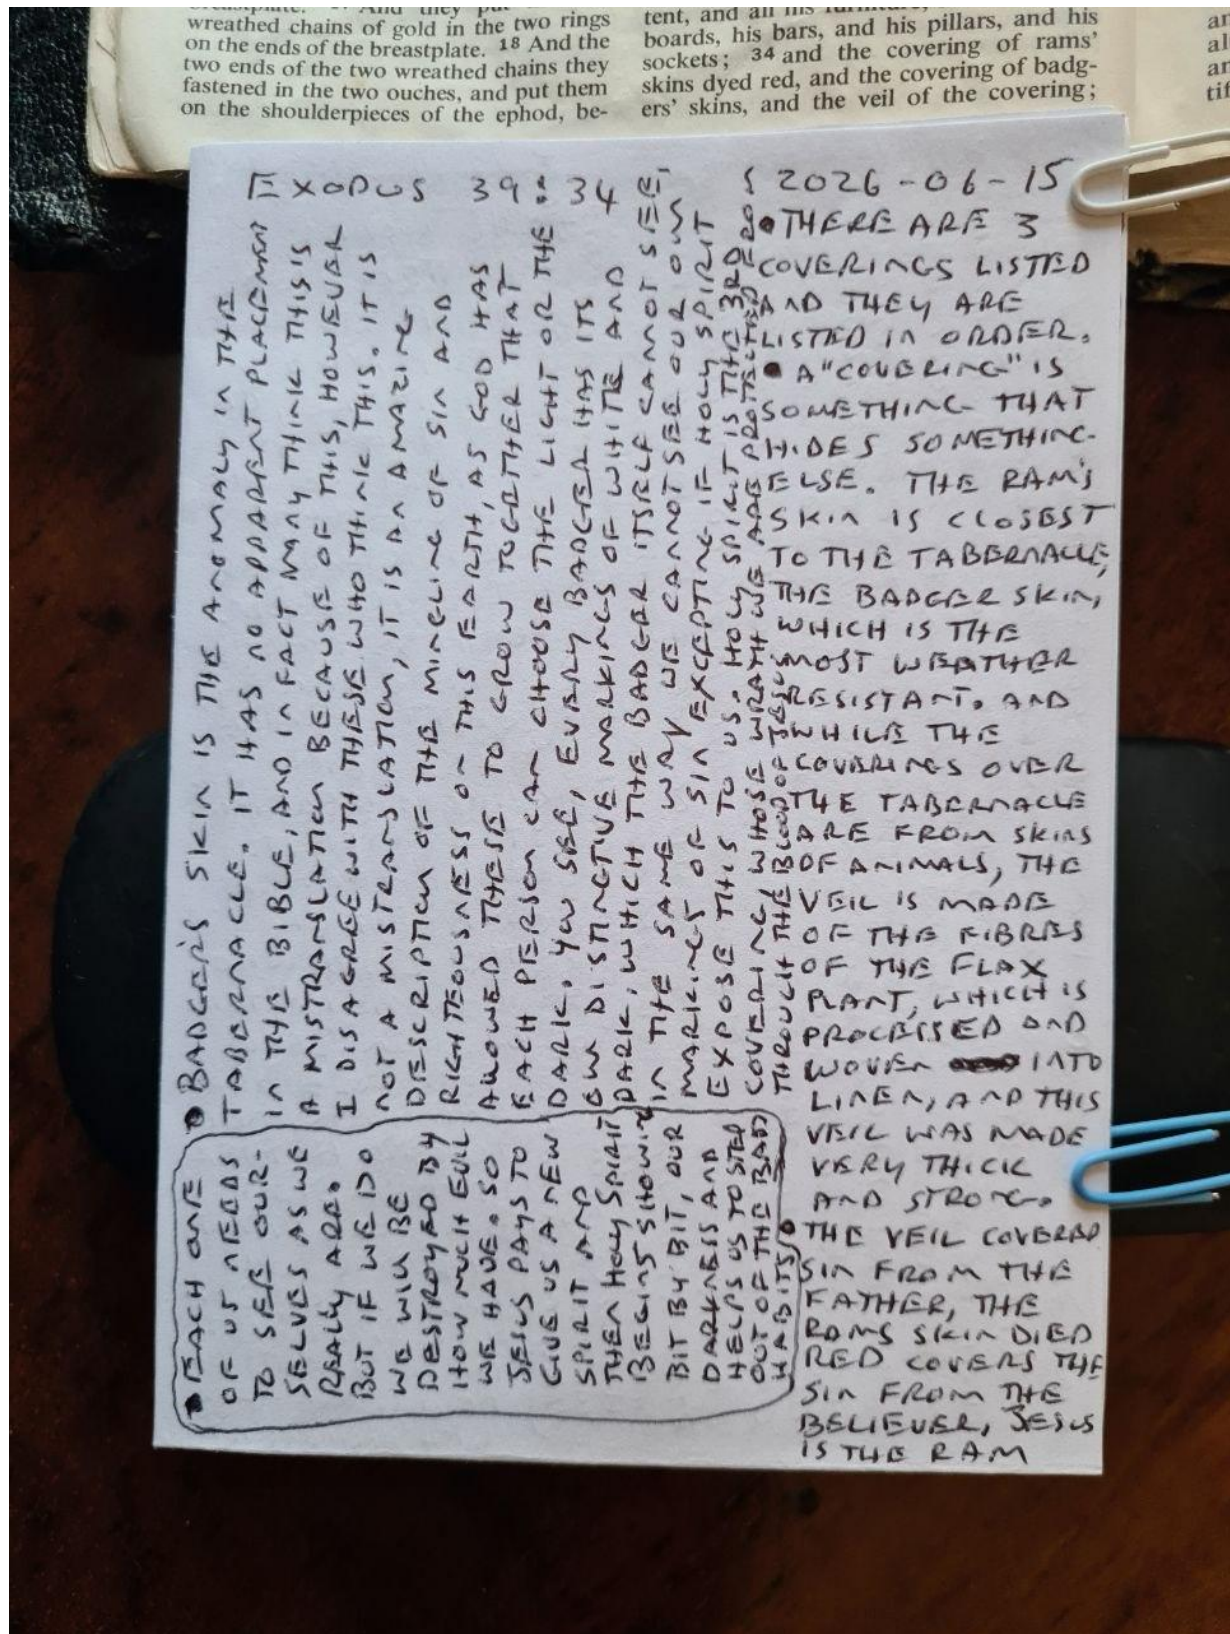 breastplate. And they put
wreathed chains of gold in the two rings
on the ends of the breastplate. 18 And the
two ends of the two wreathed chains they
fastened in the two ouches, and put them
on the shoulderpieces of the ephod, be-
tent, and all his furniture,
boards, his bars, and his pillars, and his
sockets; 34 and the covering of rams'
skins dyed red, and the covering of badg-
ers' skins, and the veil of the covering;
an
al
an
tif
EXODUS 39:34
{ 2026-06-15
• THERE ARE 3
COVERINGS LISTED
AND THEY ARE
LISTED IN ORDER.
• A "COVERING" IS
SOMETHING THAT
HIDES SOMETHING
ELSE. THE RAM'S
SKIN IS CLOSEST
TO THE TABERNACLE,
THE BADGER SKIN,
WHICH IS THE
MOST WEATHER
RESISTANT. AND
WHILE THE
COVERINGS OVER
THE TABERNACLE
ARE FROM SKINS
OF ANIMALS, THE
VEIL IS MADE
OF THE FIBRES
OF THE FLAX
PLANT, WHICH IS
PROCESSED AND
WOVEN INTO
LINEN, AND THIS
VEIL WAS MADE
VERY THICK
AND STRONG.
• THE VEIL COVERED
SIN FROM THE
FATHER, THE
RAMS SKIN DIED
RED COVERS THE
SIN FROM THE
BELIEVER, JESUS
IS THE RAM
• BADGER'S SKIN IS THE ANOMALY IN THE
TABERNACLE. IT HAS NO APPARENT PLACEMENT
IN THE BIBLE, AND IN FACT MANY THINK THIS IS
A MISTRANSLATION BECAUSE OF THIS, HOWEVER
I DISAGREE WITH THESE WHO THINK THIS. IT IS
NOT A MISTRANSLATION, IT IS AN AMAZING
DESCRIPTION OF THE MINGLING OF SIN AND
RIGHTEOUSNESS ON THIS EARTH, AS GOD HAS
ALLOWED THESE TO GROW TOGETHER THAT
EACH PERSON CAN CHOOSE THE LIGHT OR THE
DARK. YOU SEE, EVERY BADGER HAS ITS
OWN DISTINCTIVE MARKINGS OF WHITE AND
DARK, WHICH THE BADGER ITSELF CANNOT SEE,
IN THE SAME WAY WE CANNOT SEE OUR OWN
MARKINGS OF SIN EXCEPTING IF HOLY SPIRIT
EXPOSE THIS TO US. HOLY SPIRIT IS THE 3RD
COVERING WHOSE WRATH WE ARE PROTECTED
THROUGH THE BLOOD OF JESUS
• EACH ONE
OF US NEEDS
TO SEE OUR-
SELVES AS WE
REALLY ARE.
BUT IF WE DO
WE WILL BE
DESTROYED BY
HOW MUCH EVIL
WE HAVE. SO
JESUS PAYS TO
GIVE US A NEW
SPIRIT AND
THEN HOLY SPIRIT
BEGINS SHOWING
BIT BY BIT, OUR
DARKNESS AND
HELPS US TO STEP
OUT OF THE BAD
HABITS